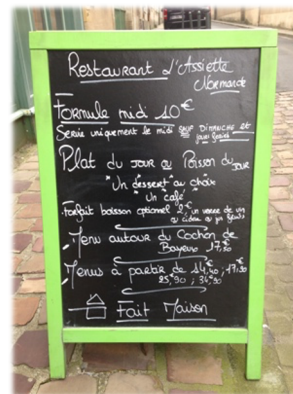 Restaurant l'Assiette
Normande
Formule midi 10€
Servie uniquement le midi sauf Dimanche et
jours feriés
Plat du jour ou Poisson du jour
Un dessert au choix
Un café
Forfait boisson optionnel 2€, un verre de vin
ou cidre ou jus
Menu autour du Cochon de
Bayeux 17,50€
Menus à partir de 14,40€, 17,50
25,90 ; 34,90
Fait Maison